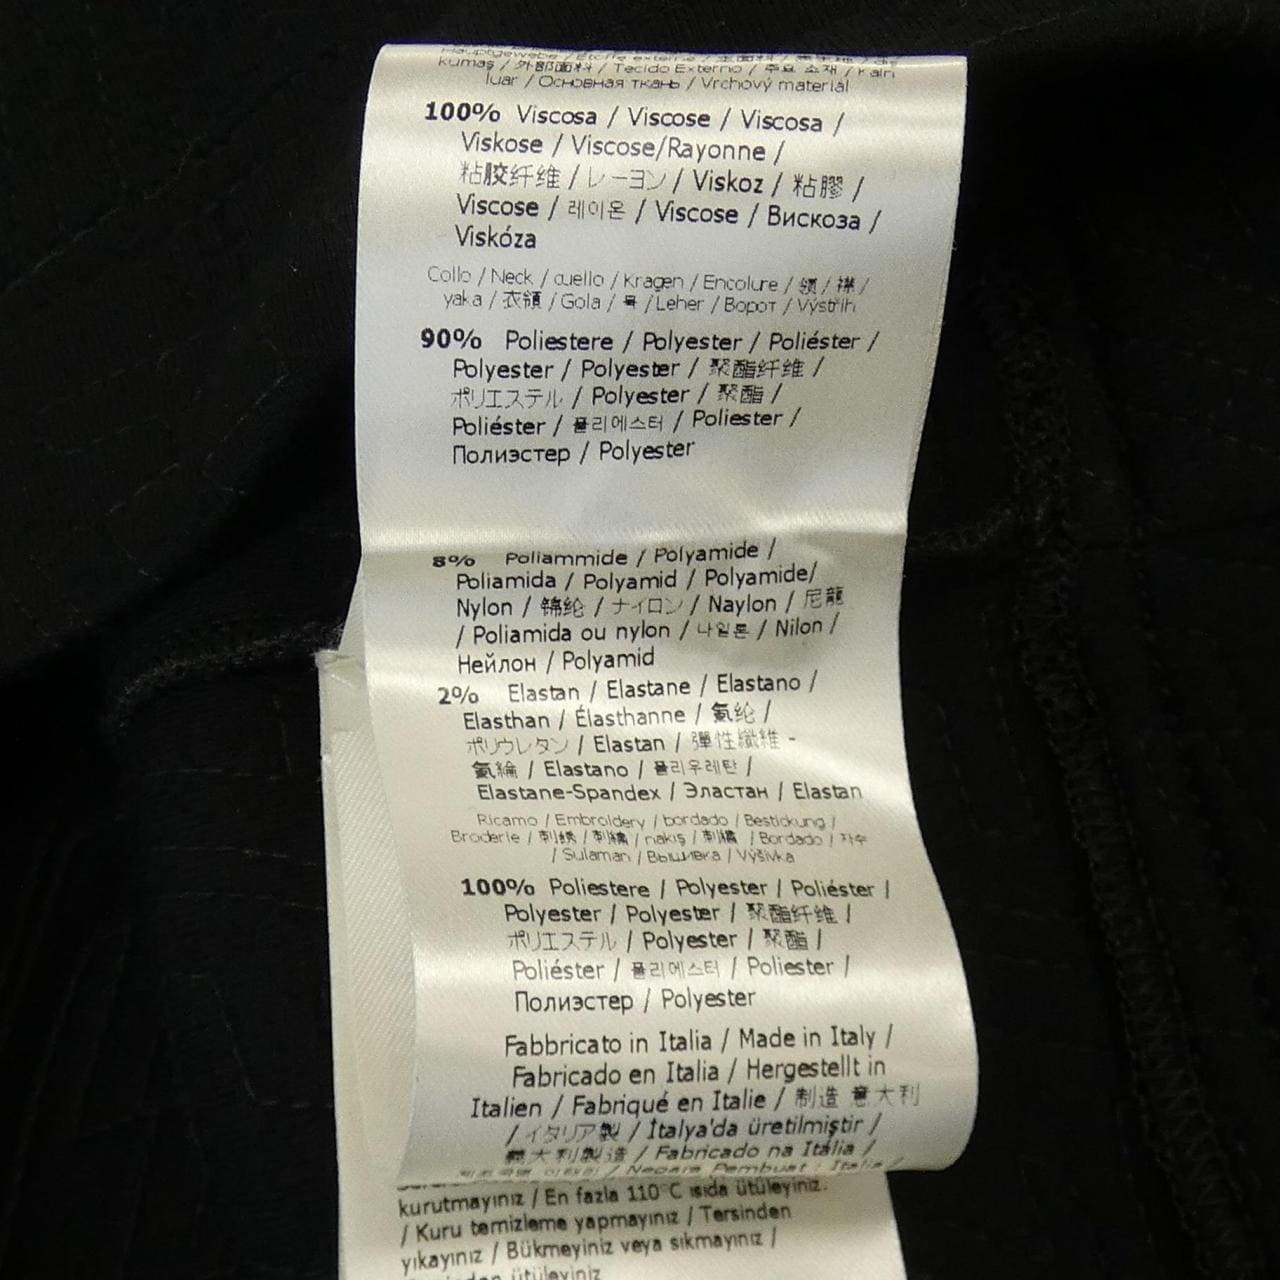 kumaş / 外部面料 / Tecido Externo / 주요 소재 / Kain
luar / Основная ткань / Vrchový materiál
100% Viscosa / Viscose / Viscosa /
Viskose / Viscose/Rayonne /
粘胶纤维 / レーヨン / Viskoz / 粘膠 /
Viscose / 레이온 / Viscose / Вискоза /
Viskóza
Collo / Neck / cuello / Kragen / Encolure / 领 / 襟 /
yaka / 衣領 / Gola / 목 / Leher / Ворот / Výstřih
90% Poliestere / Polyester / Poliéster /
Polyester / Polyester / 聚酯纤维 /
ポリエステル / Polyester / 聚酯 /
Poliéster / 폴리에스터 / Poliester /
Полиэстер / Polyester
8% Poliammide / Polyamide /
Poliamida / Polyamid / Polyamide/
Nylon / 锦纶 / ナイロン / Naylon / 尼龍
/ Poliamida ou nylon / 나일론 / Nilon /
Нейлон / Polyamid
2% Elastan / Elastane / Elastano /
Elasthan / Élasthanne / 氨纶 /
ポリウレタン / Elastan / 彈性纖維 -
氨綸 / Elastano / 폴리우레탄 /
Elastane-Spandex / Эластан / Elastan
Ricamo / Embroidery / bordado / Bestickung /
Broderie / 刺绣 / 刺繍 / nakış / 刺繡 / Bordado / 자수
/ Sulaman / Вышивка / Výšivka
100% Poliestere / Polyester / Poliéster /
Polyester / Polyester / 聚酯纤维 /
ポリエステル / Polyester / 聚酯 /
Poliéster / 폴리에스터 / Poliester /
Полиэстер / Polyester
Fabbricato in Italia / Made in Italy /
Fabricado en Italia / Hergestellt in
Italien / Fabriqué en Italie / 制造 意大利
/ イタリア製 / İtalya'da üretilmiştir /
義大利製造 / Fabricado na Itália /
/ Negara Pembuat : Italia /
kurutmayınız / En fazla 110°C ısıda ütüleyiniz.
/ Kuru temizleme yapmayınız / Tersinden
yıkayınız / Bükmeyiniz veya sıkmayınız /
ütüleyiniz